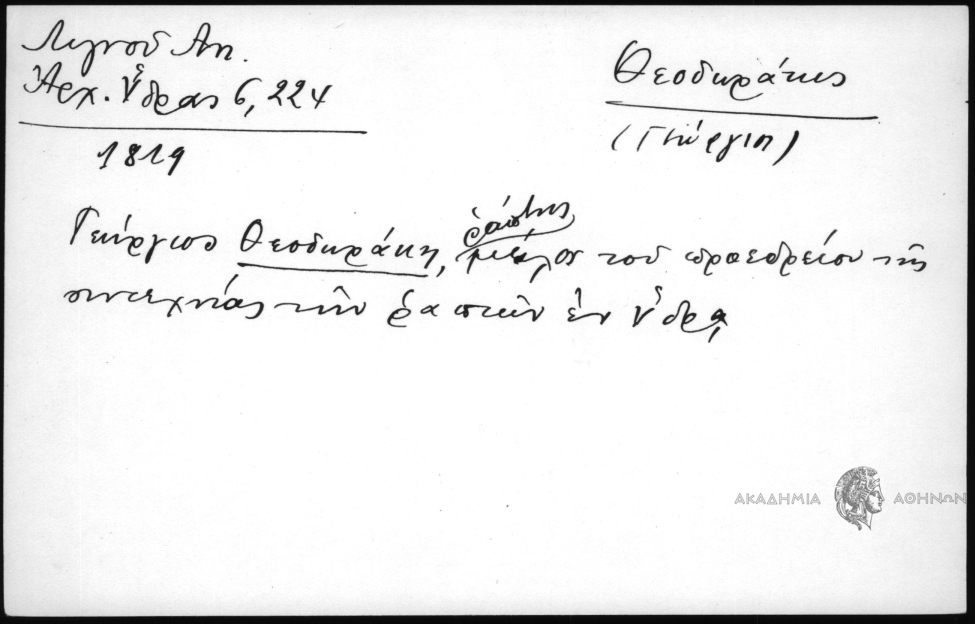 Λιγνοῦ Αν.
Ἀρχ. Ὕδρας 6, 224
1819
Θεοδωράκης
(Γεώργιος)
Γεώργιος Θεοδωράκη, ῥάπτης,
μέλος τοῦ προεδρείου τῆς
συντεχνίας τῶν ῥαπτῶν ἐν Ὕδρᾳ
ΑΚΑΔΗΜΙΑ ΑΘΗΝΩΝ